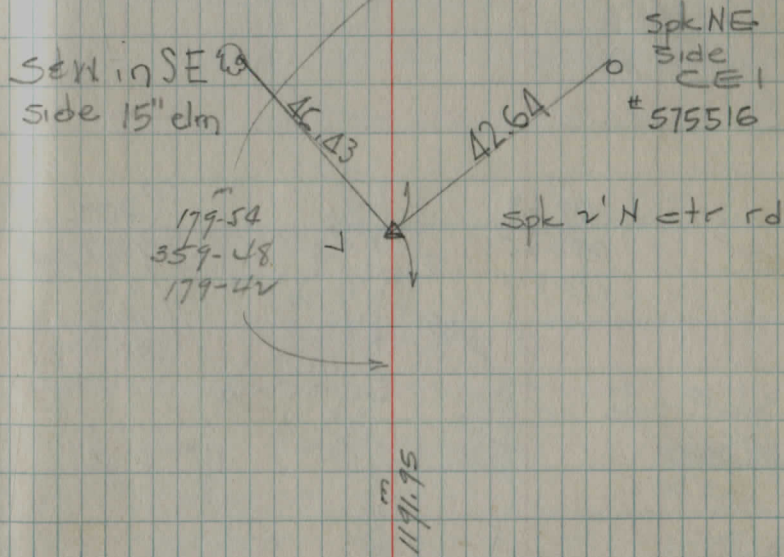 S&W in SE
side 15" elm
46.43
42.64
Spk NE
side
CEI
#575516
Spk 2' N ctr rd
179-54
359-48
179-42
1191.95